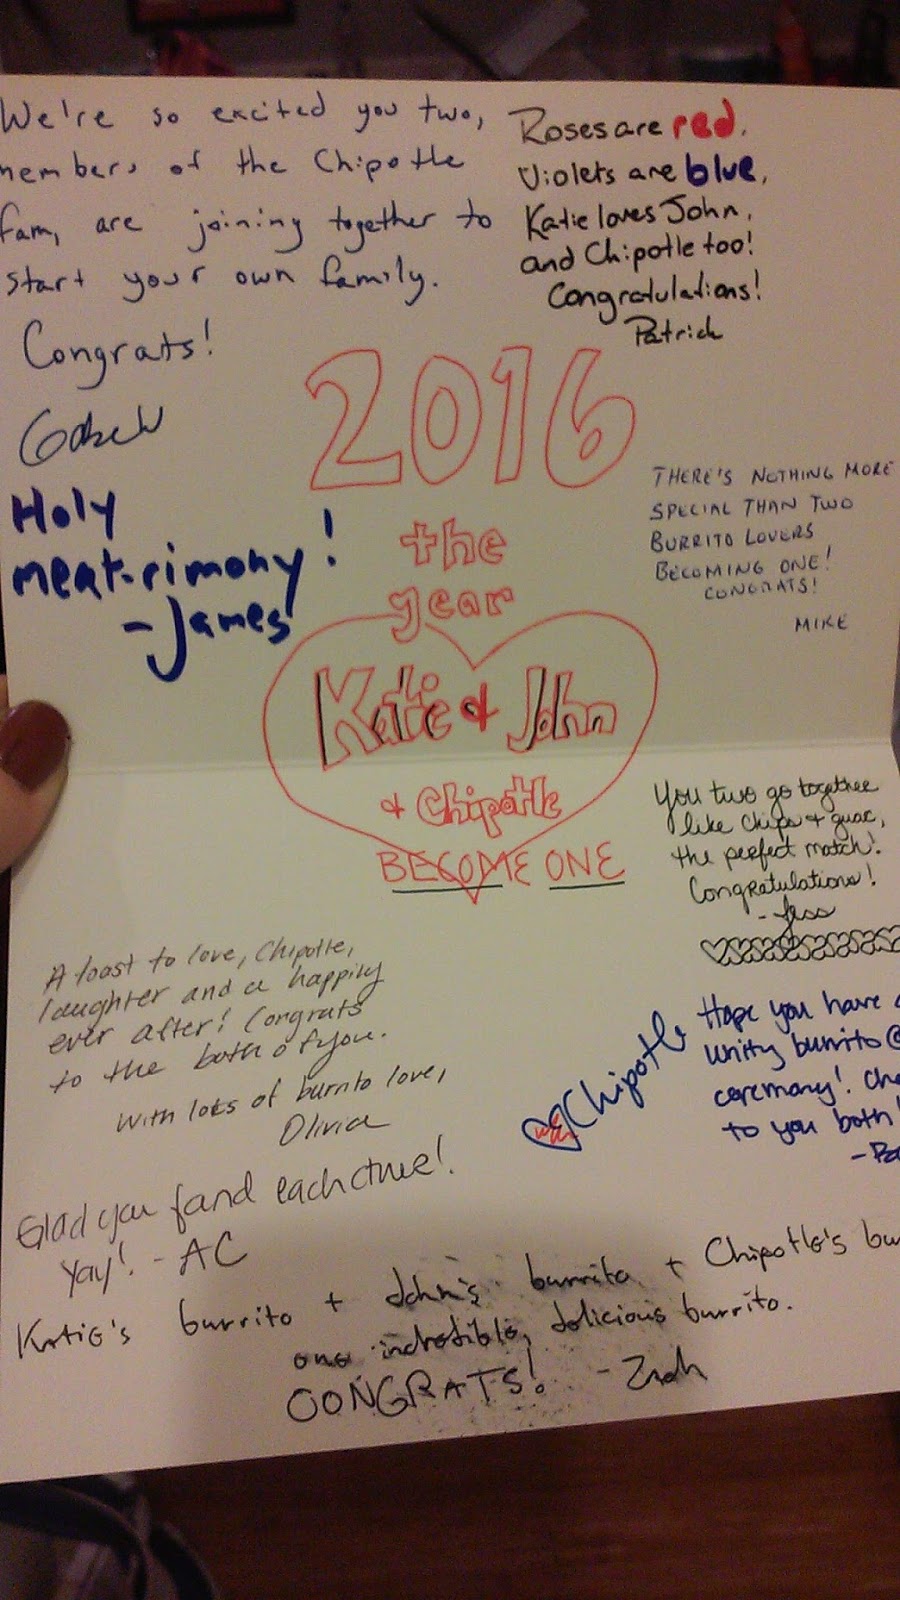 We're so excited you two,
members of the Chipotle
fam, are joining together to
start your own family.
Congrats!
Roses are red,
Violets are blue,
Katie loves John,
and Chipotle too!
Congratulations!
Patrick
2016
the
year
Katie & John
& Chipotle
BECOME ONE
Holy
meat-rimony!
- James
THERE'S NOTHING MORE
SPECIAL THAN TWO
BURRITO LOVERS
BECOMING ONE!
CONGRATS!
MIKE
You two go together
like chips + guac,
the perfect match!
Congratulations!
- Jess
A toast to love, Chipotle,
laughter and a happily
ever after! Congrats
to the both of you.
With lots of burrito love,
Olivia
Chipotle
Hope you have a
unity burrito @
ceremony!
to you both!
Glad you found each other!
Yay! - AC
Katie's burrito + John's burrito + Chipotle's
one incredible, delicious burrito.
CONGRATS! - Zach